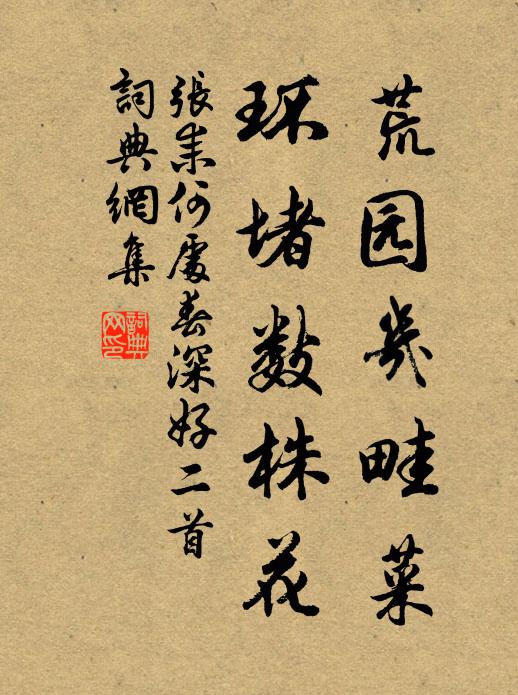 荒园几畦菜
环堵数株花
張耒何處春深好二首
詞典網集
詞典
网印